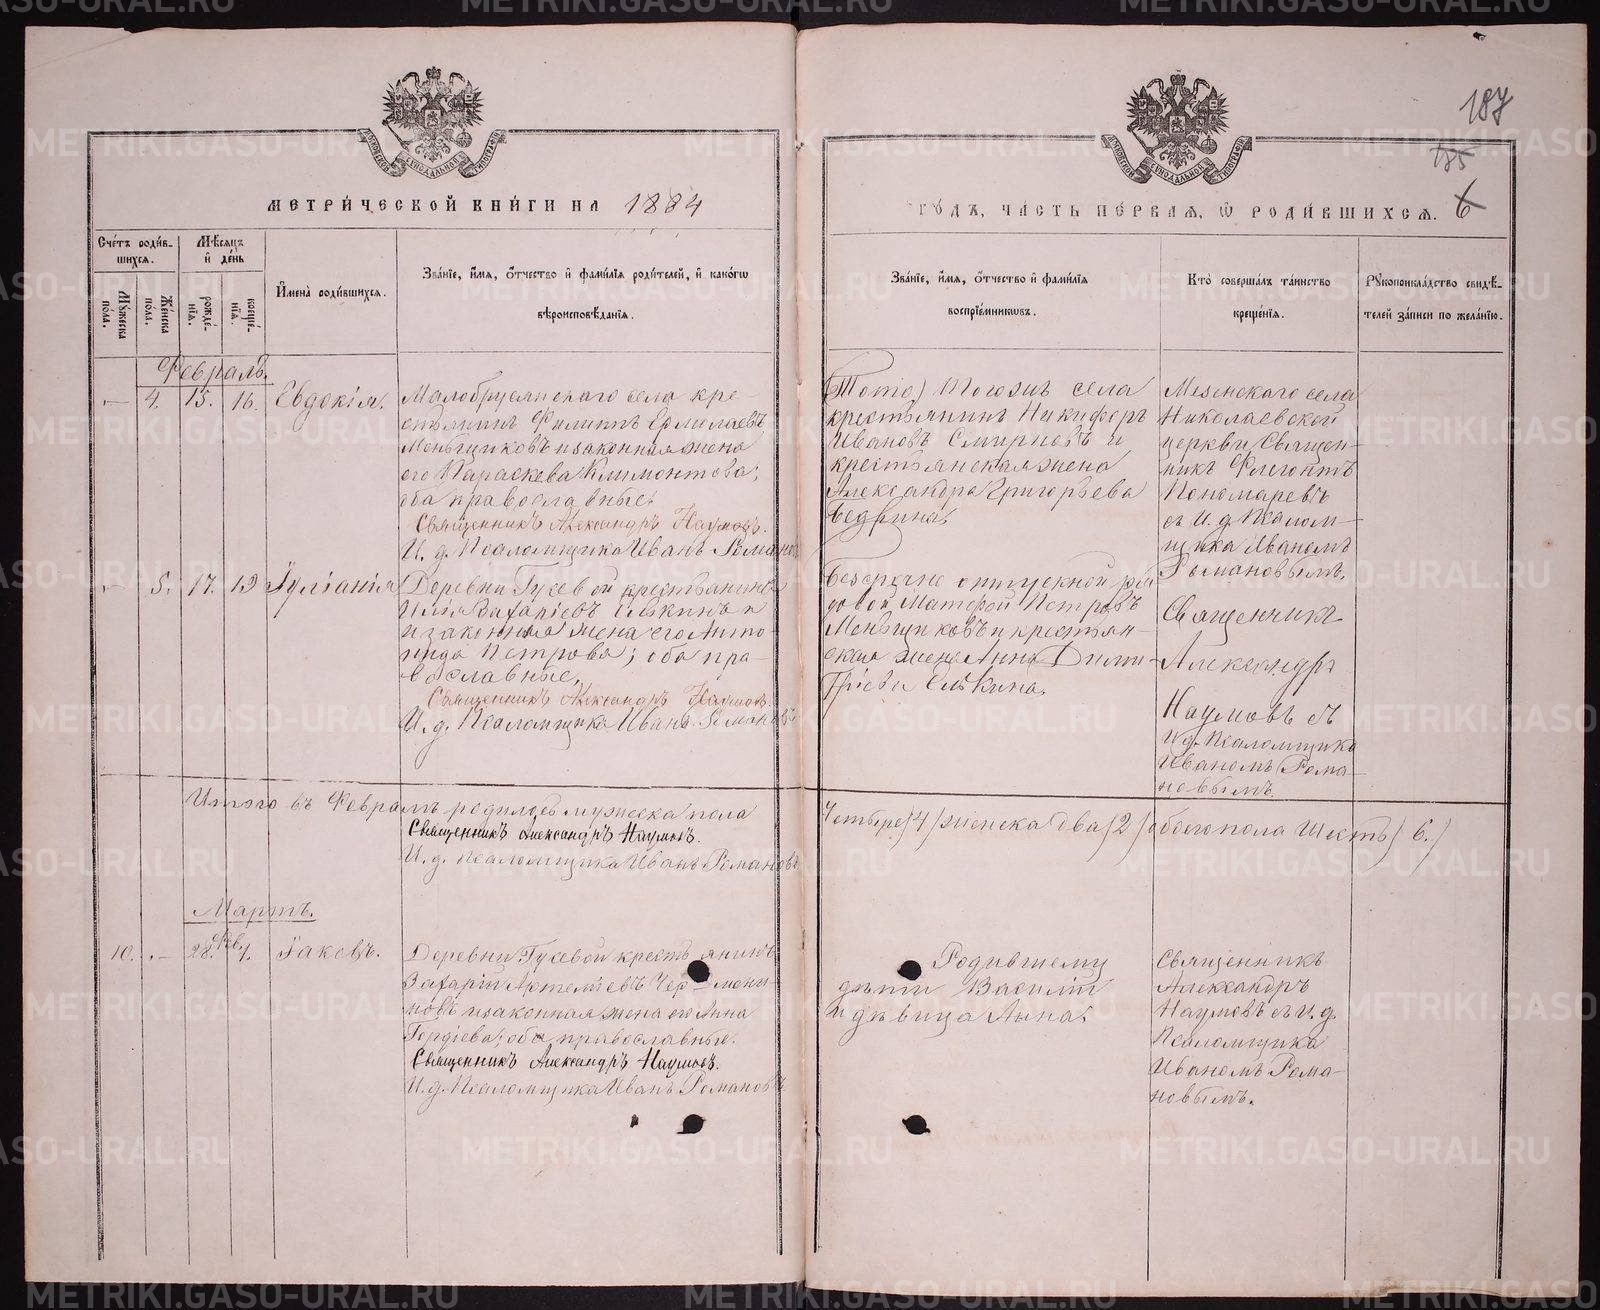 187
185
6
МЕТРИ́ЧЕСКОЙ КНИ́ГИ НА 1884
ГО́ДЪ, ЧА́СТЬ ПЕ́РВАЯ, Ѡ РОДИ́ВШИХСЯ.
Сче́тъ роди́в-
шихся.
Мꙋ́жеска по́ла.
Же́нска по́ла.
Мѣ́сяцъ
и҆ де́нь
рожде́-
нїя.
креще́-
нїя.
И҆мена̀ роди́вшихся.
Зва́нїе, и҆́мя, ѻ҆́тчество и҆ фами́лїя роди́телей, и҆ како́гѡ
вѣроисповѣ́данїя.
Зва́нїе, и҆́мя, ѻ҆́тчество и҆ фами́лїя
воспрїе́мникѡвъ.
Кто̀ соверша́лъ та́инство
креще́нїя.
Рꙋкоприкла́дство свидѣ́-
телей за́писи по жела́нїю.
Февраль.
— 4. 15. 16. Евдокія.
Малобрусянскаго села кре-
стьянинъ Филиппъ Ермолаевъ
Меньщиковъ и законная жена
его Параскева Климонтова;
оба православные.
Священникъ Александръ Наумовъ.
И. д. Псаломщика Иванъ Романовъ
Тогоже села
крестьянинъ Никифоръ
Ивановъ Смирновъ и
крестьянская жена
Александра Григорьева
Бедрина.
Мезенскаго села
Николаевской
церкви Священ-
никъ Флегонтъ
Пономаревъ
съ И. д. Псалом-
щика Иваномъ
Романовымъ.
— 5. 17. 19 Іуліанія
Деревни Гусевой крестьянинъ
Илія Захаріевъ
и законная жена его Анто-
нида Петрова; оба пра-
вославные.
Священникъ Александръ Наумовъ.
И. д. Псаломщика Иванъ Романовъ
Безсрочно отпускной ря-
довой Петровъ
Меньщиковъ и крестьян-
ская жена Анна Дими-
тріева
Священникъ
Александръ
Наумовъ съ
И. д. Псаломщика
Иваномъ Рома-
новымъ.
Итого въ Февралѣ родилось мужеска пола
Четыре /4/ женска два /2/ обоего пола Шесть / 6. /
Священникъ Александръ Наумовъ.
И. д. Псаломщика Иванъ Романовъ
Мартъ.
Фев.
10. — 28. 1. Іаковъ.
Деревни Гусевой крестьянинъ
Захарій Артеміевъ
новъ и законная жена его Анна
Гордіева; оба православные.
Священникъ Александръ Наумовъ.
И. д. Псаломщика Иванъ Романовъ
Родившему
дѣти Василій
и дѣвица Анна.
Священникъ
Александръ
Наумовъ съ И. д.
Псаломщика
Иваномъ Рома-
новымъ.
METRIKI.GASO-URAL.RU